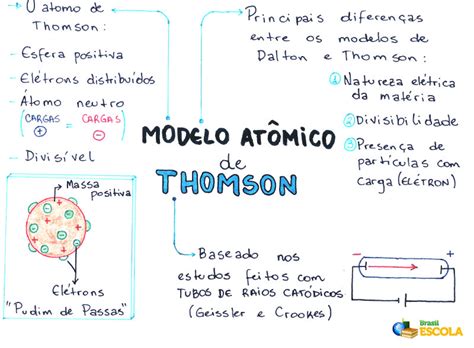 - O átomo de
Thomson:
- Esfera positiva
- Elétrons distribuídos
- Átomo neutro
(CARGAS = CARGAS)
+ -
- Divisível
Massa
positiva
Elétrons
"Pudim de Passas"
MODELO ATÔMICO
de
THOMSON
Principais diferenças
entre os modelos de
Dalton e Thomson:
① Natureza elétrica
da matéria
② Divisibilidade
③ Presença de
partículas com
carga (ELÉTRON)
Baseado nos
estudos feitos com
TUBOS DE RAIOS CATÓDICOS
(Geissler e Crookes)
- +
Brasil
ESCOLA